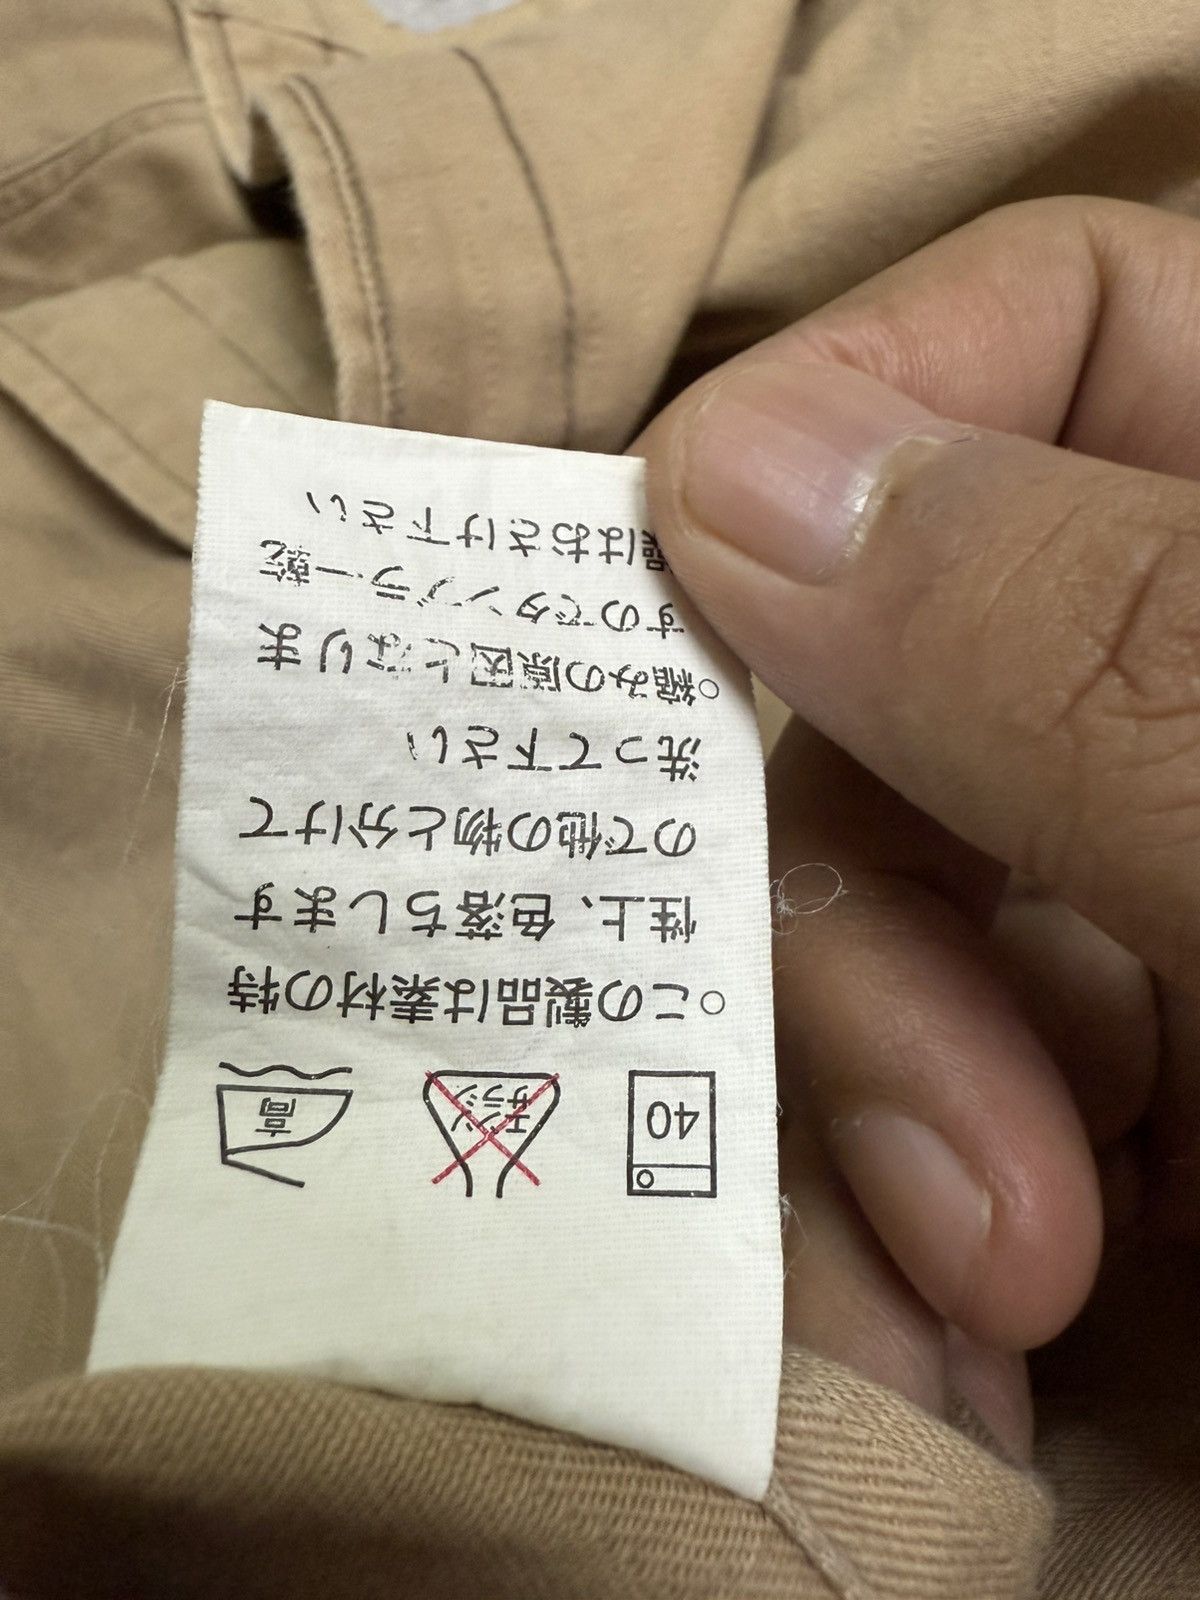 40
エンソ
サラシ
高
○この製品は素材の特
性上、色落ちします
ので他の物と分けて
洗って下さい
○縮みの原因となりま
すのでタンブラー乾
燥はおさけ下さい